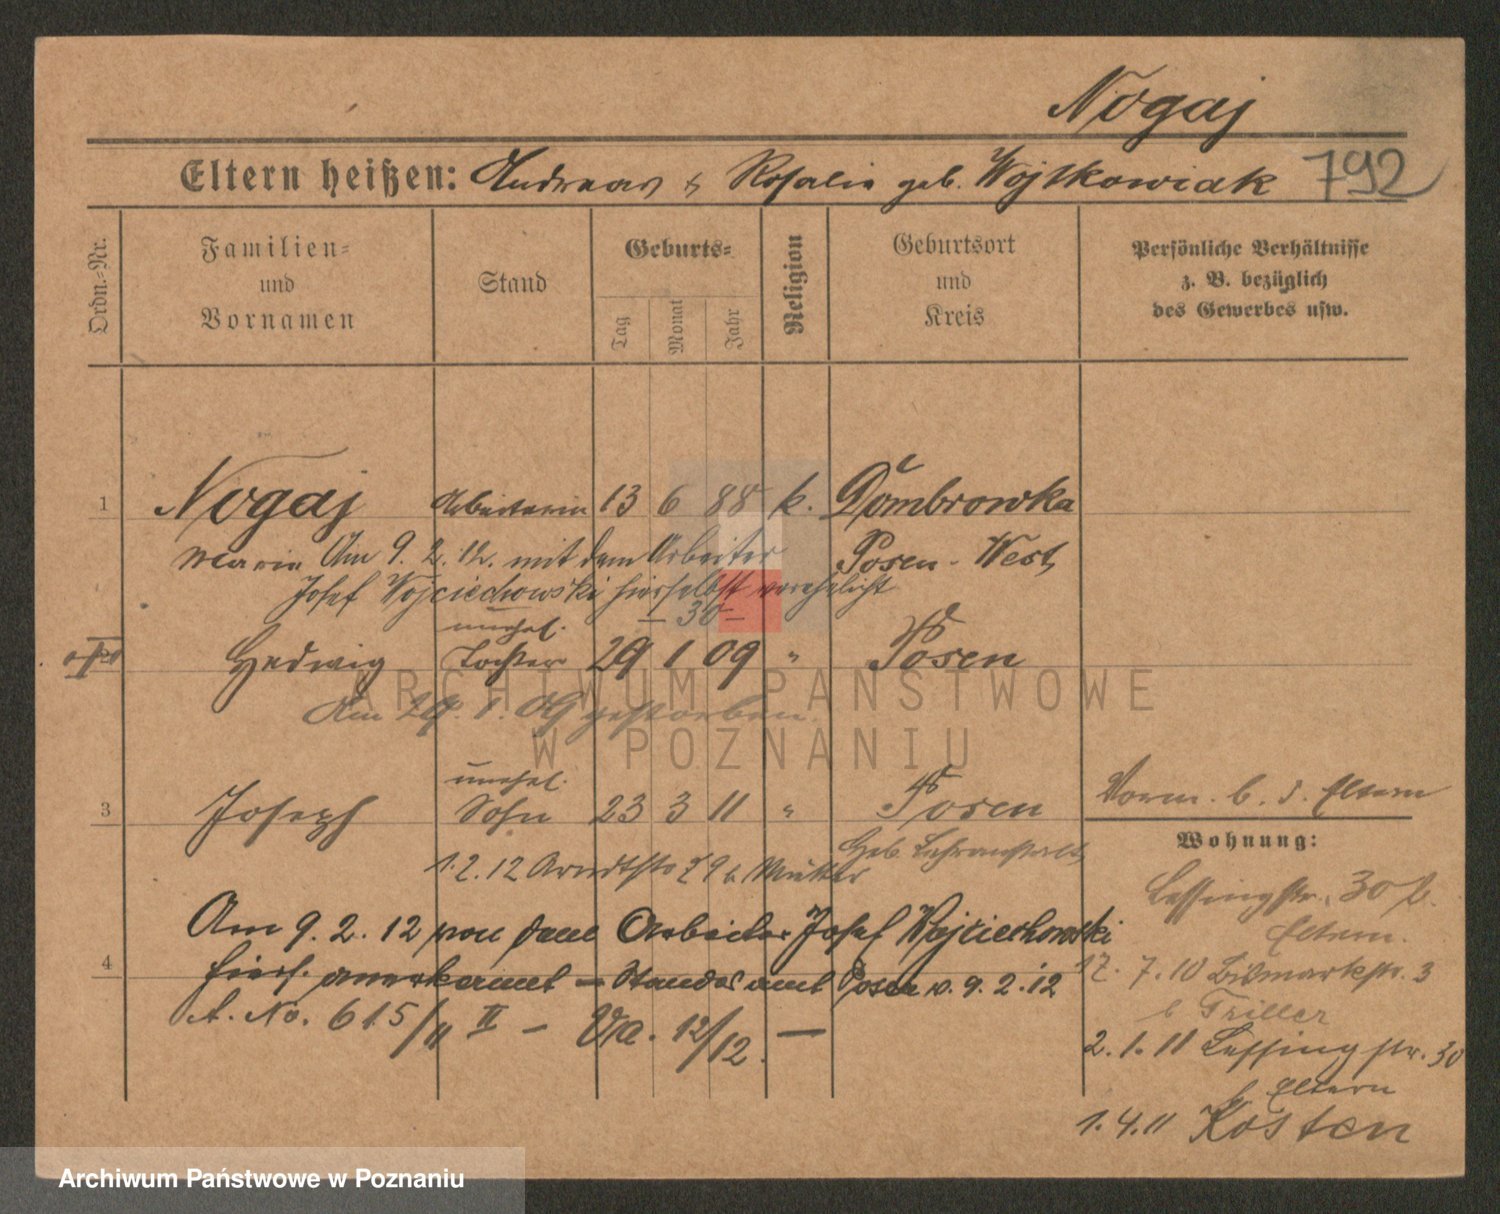 Nogaj
Eltern heißen: Andreas & Rosalie geb. Wojtkowiak 792
Ordn.-Nr.
Familien-
und
Vornamen
Stand
Geburts-
Tag
Monat
Jahr
Religion
Geburtsort
und
Kreis
Persönliche Verhältnisse
z. B. bezüglich
des Gewerbes usw.
1 Nogaj Arbeiterin 13 6 88 k. Dombrowka
Marie Am 9. 2. 12. mit dem Arbeiter Posen-West
Josef Wojciechowski hierselbst verehelicht
– 30 –
unehel.
Hedwig Tochter 29 1 09 " Posen
Am 29. 1. 09 gestorben.
unehel.
3 Joseph Sohn 23 3 11 " Posen
Vorm. b. d. Eltern
Geb. Lehranstalt
1.2.12 Arndtstr 29 b Mutter
Am 9. 2. 12 von dem Arbeiter Josef Wojciechowski
4 hiers. anerkannt – Standesamt Posen v. 9. 2. 12
A. No. 615/11 II – Va. 12/12. –
Wohnung:
Lessingstr. 30 b.
Eltern.
17. 7. 10 Bismarckstr. 3
b Triller
2. 1. 11 Lessingstr. 30
b Eltern
1. 4. 11 Kosten
ARCHIWUM PAŃSTWOWE
W POZNANIU
Archiwum Państwowe w Poznaniu